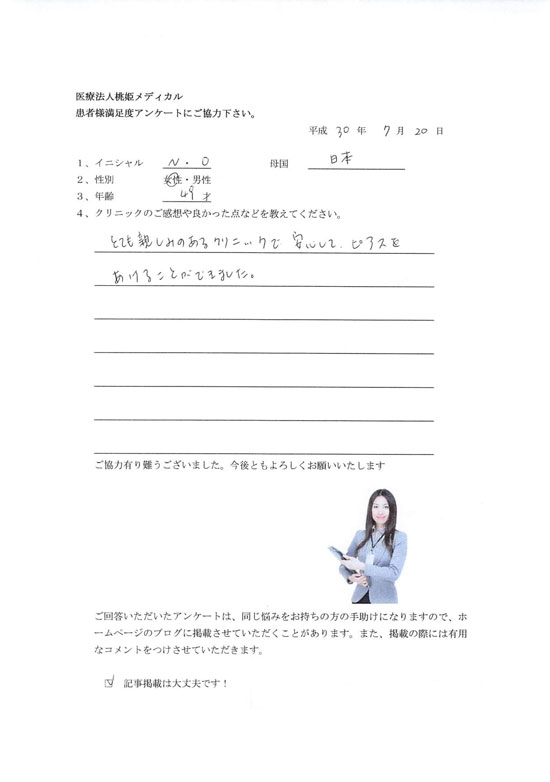 医療法人桃姫メディカル
患者様満足度アンケートにご協力下さい。
平成 30 年 7 月 20 日
1、イニシャル N・O 母国 日本
2、性別 女性・男性
3、年齢 49 才
4、クリニックのご感想や良かった点などを教えてください。
とても親しみのあるクリニックで 安心して、ピアスを
あけることができました。
ご協力有り難うございました。今後ともよろしくお願いいたします
ご回答いただいたアンケートは、同じ悩みをお持ちの方の手助けになりますので、ホ
ームページのブログに掲載させていただくことがあります。また、掲載の際には有用
なコメントをつけさせていただきます。
☑ 記事掲載は大丈夫です！